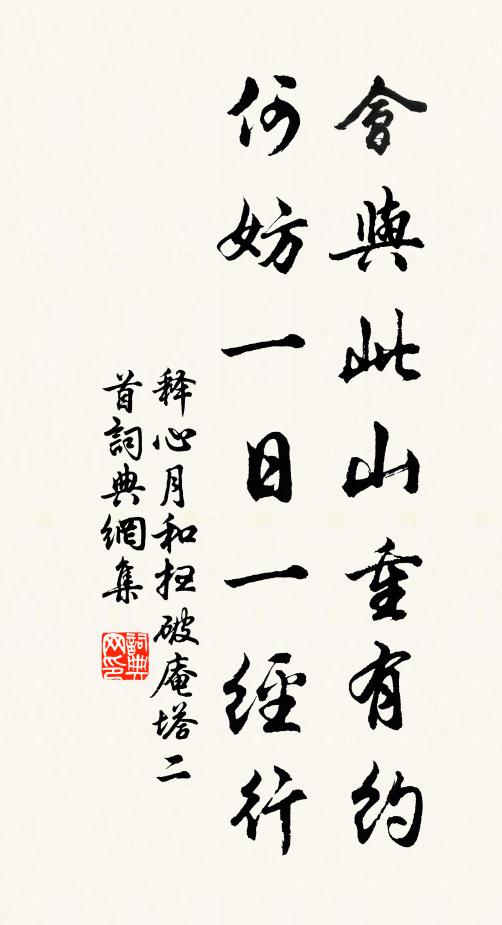 會與此山重有約
何妨一日一經行
释心月和扫破庵塔二
首詞典網集
詞典
网印